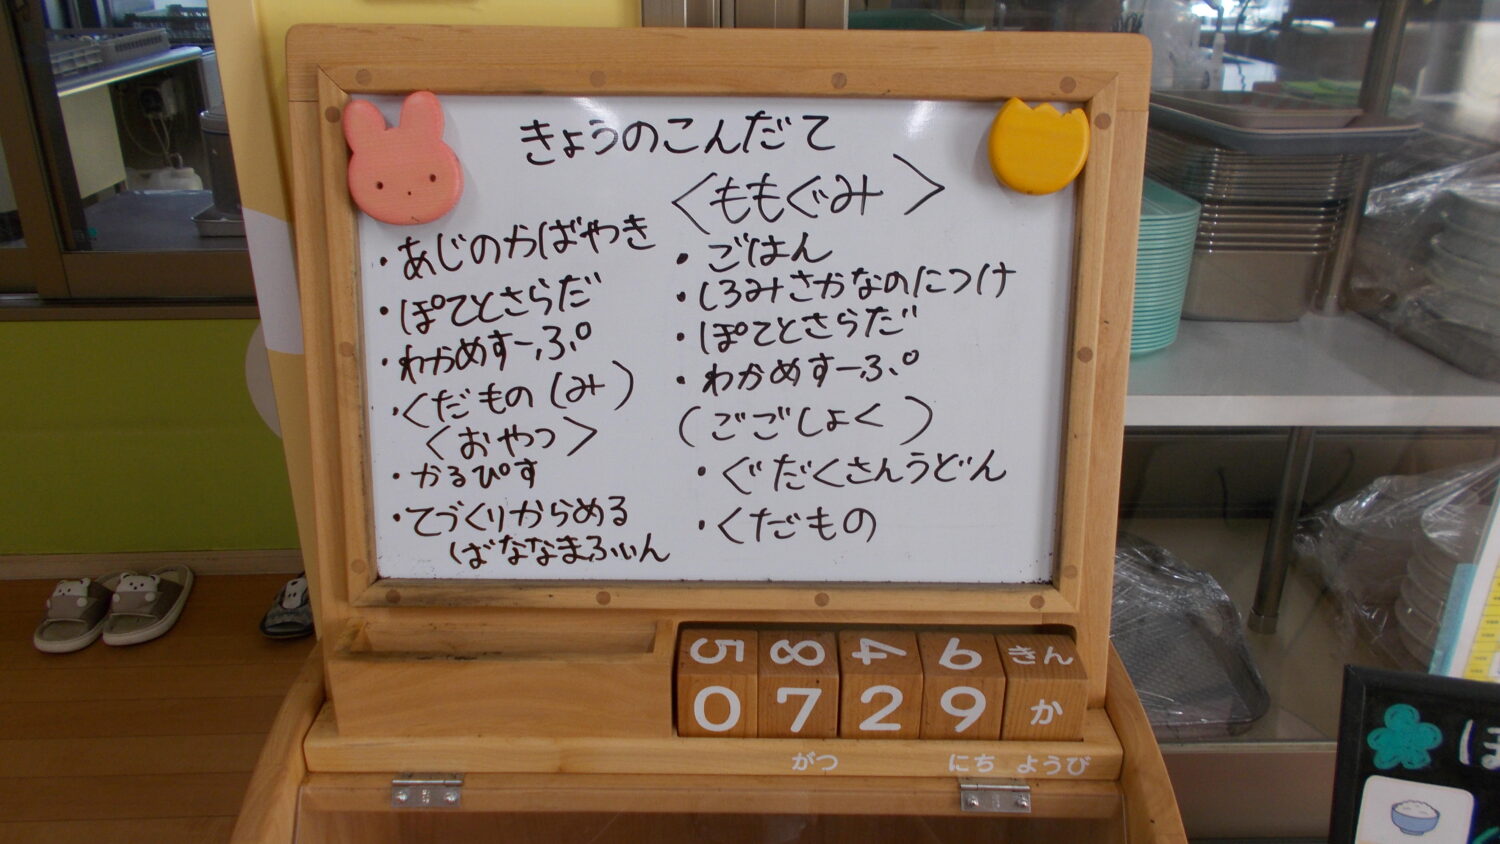 きょうのこんだて
・あじのかばやき
・ぽてとさらだ
・わかめすーぷ
・くだもの(み)
<おやつ>
・かるぴす
・てづくりからめる
ばななまふぃん
<ももぐみ>
・ごはん
・しろみさかなのにつけ
・ぽてとさらだ
・わかめすーぷ
(ごごしょく)
・ぐだくさんうどん
・くだもの
5 8 4 6 きん
0 7 2 9 か
がつ にち ようび
ほ